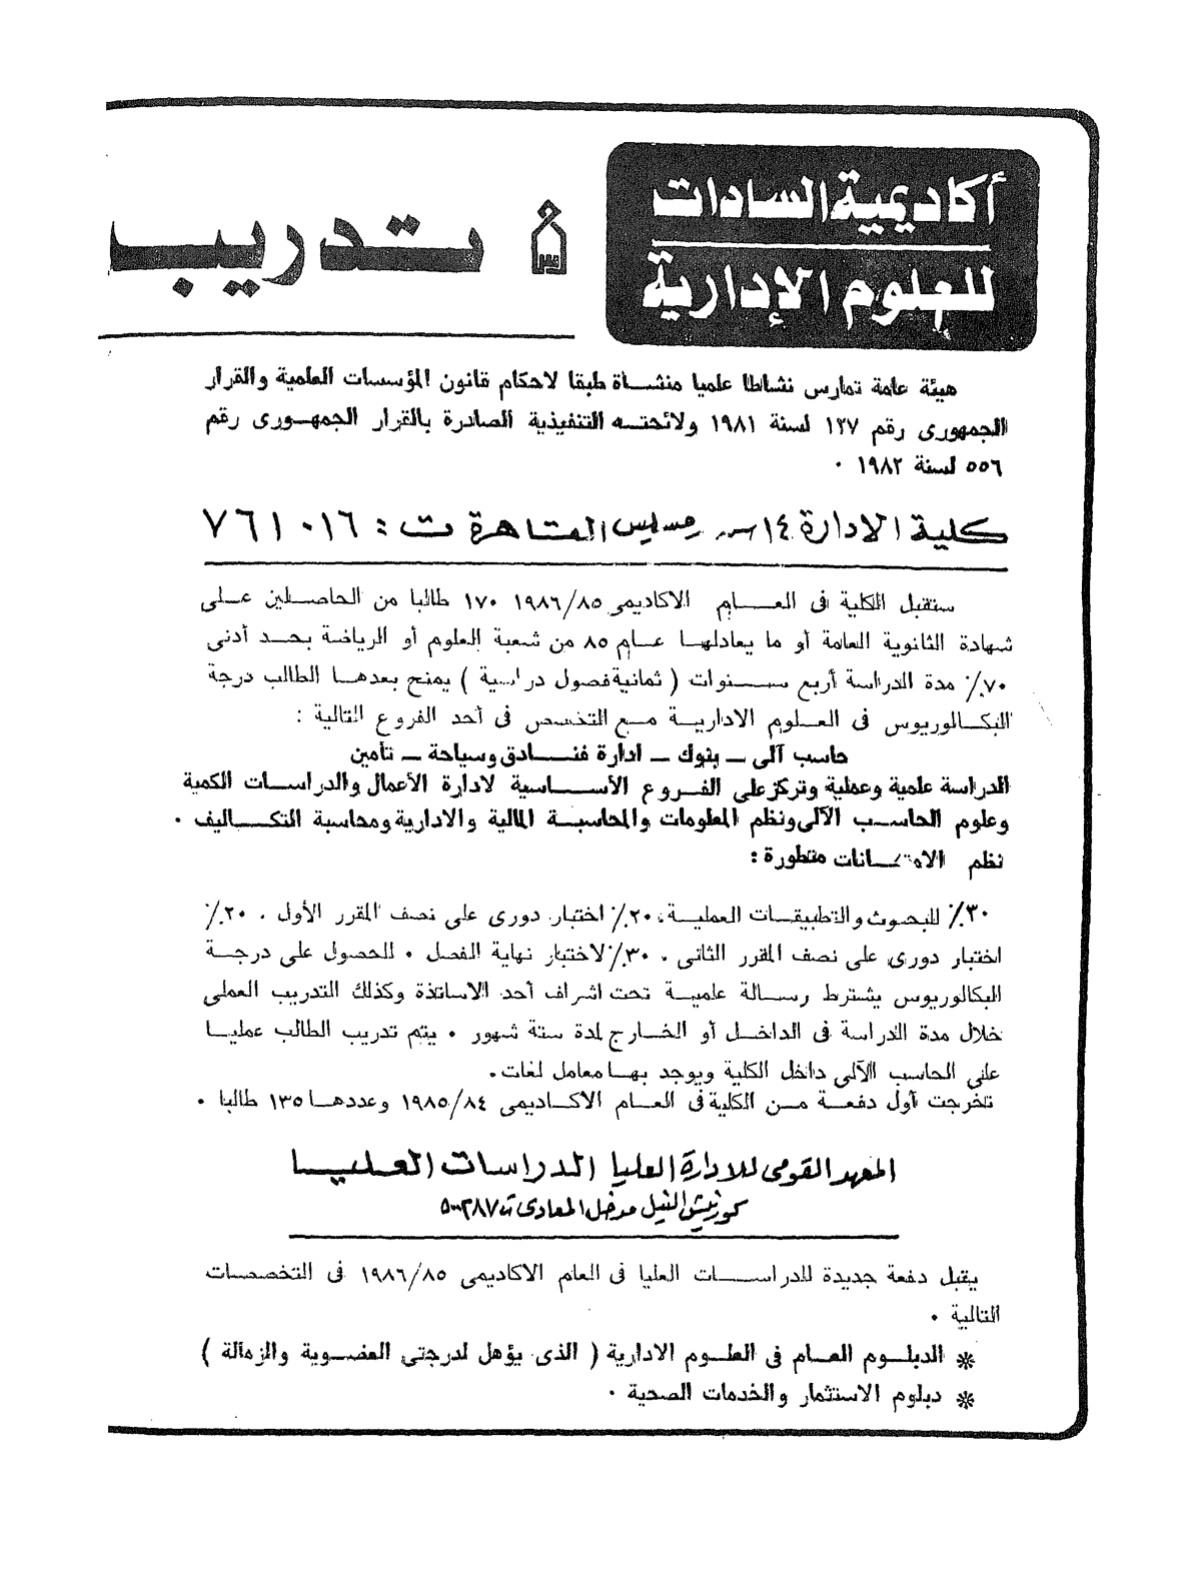 أكاديمية السادات
للعلوم الإدارية
تدريب
هيئة عامة تمارس نشاطا علميا منشأة طبقا لاحكام قانون المؤسسات العلمية والقرار
الجمهورى رقم ١٢٧ لسنة ١٩٨١ ولائحته التنفيذية الصادرة بالقرار الجمهورى رقم
٥٥٦ لسنة ١٩٨٢ ٠
كلية الادارة ١٤ ش رمسيس القاهرة ت : ٧٦١٠١٦
ستقبل الكلية فى العام الاكاديمى ١٩٨٦/٨٥ ١٧٠ طالبا من الحاصلين على
شهادة الثانوية العامة أو ما يعادلها عام ٨٥ من شعبة العلوم أو الرياضة بحد أدنى
٧٠٪ مدة الدراسة أربع سنوات ( ثمانية فصول دراسية ) يمنح بعدها الطالب درجة
البكالوريوس فى العلوم الادارية مع التخصص فى أحد الفروع التالية :
حاسب آلى – بنوك – ادارة فنادق وسياحة – تأمين
الدراسة علمية وعملية وتركز على الفروع الأساسية لادارة الأعمال والدراسات الكمية
وعلوم الحاسب الآلى ونظم المعلومات والمحاسبة المالية والادارية ومحاسبة التكاليف ٠
نظم الامتحانات متطورة :
٣٠٪ للبحوث والتطبيقات العملية، ٢٠٪ اختبار دورى على نصف المقرر الأول . ٢٠٪
اختبار دورى على نصف المقرر الثانى . ٣٠٪ لاختبار نهاية الفصل ٠ للحصول على درجة
البكالوريوس يشترط رسالة علمية تحت اشراف أحد الاساتذة وكذلك التدريب العملى
خلال مدة الدراسة فى الداخل أو الخارج لمدة ستة شهور ٠ يتم تدريب الطالب عمليا
على الحاسب الآلى داخل الكلية ويوجد بها معامل لغات ٠
تخرجت أول دفعة من الكلية فى العام الاكاديمى ١٩٨٥/٨٤ وعددها ١٣٥ طالبا ٠
المعهد القومى للادارة العليا الدراسات العليا
كورنيش النيل مدخل المعادى ت
يقبل دفعة جديدة للدراسات العليا فى العام الاكاديمى ١٩٨٦/٨٥ فى التخصصات
التالية ٠
* الدبلوم العام فى العلوم الادارية ( الذى يؤهل لدرجتى العضوية والزمالة )
* دبلوم الاستثمار والخدمات الصحية ٠